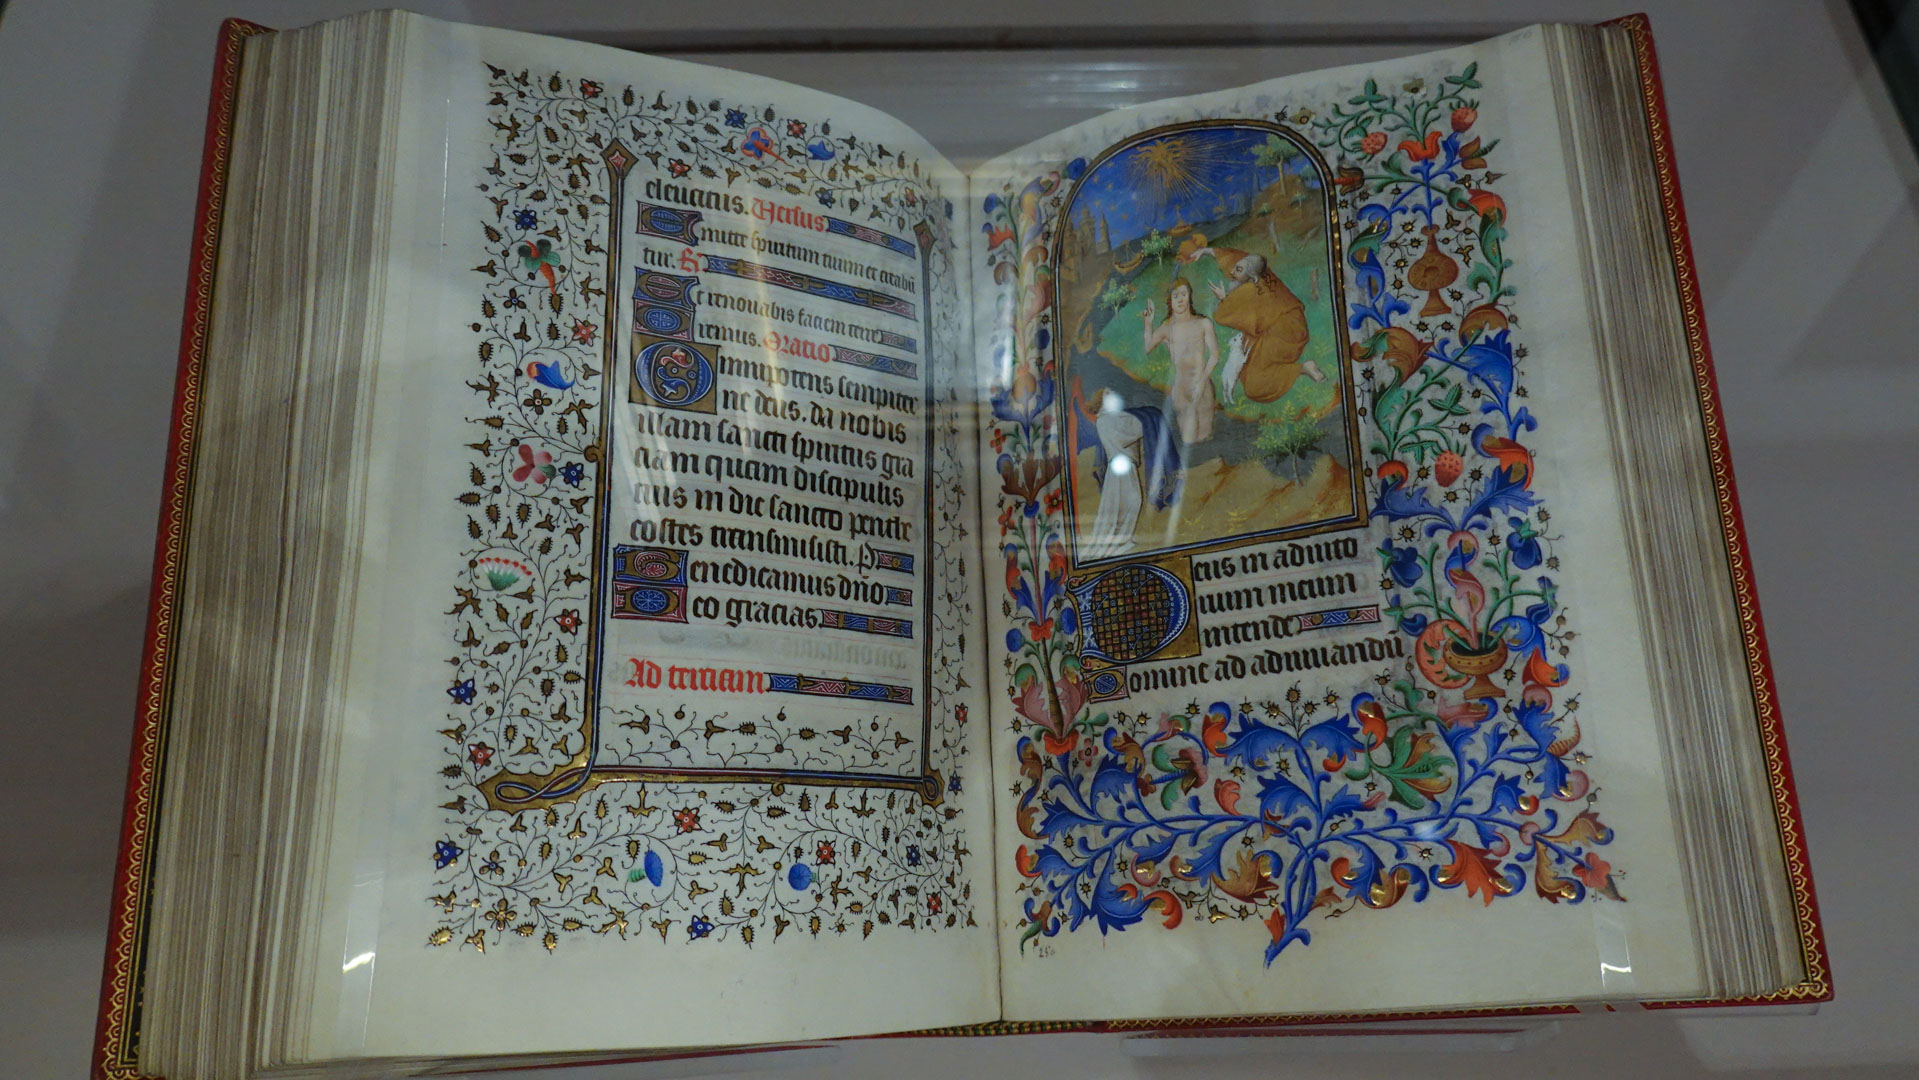 eleucius. Versus
Emitte spiritum tuum et creabū
tur. R
Et renovabis faciem terre
Oremus. Oratio
Omnipotens sempiter
ne deus. da nobis
illam sancti spiritus gra
ciam quam discipulis
tuis in die sancto penthe
costes transmisisti. P
Benedicamus dño
Deo gracias.
Ad terciam
Deus in adiuto
rium meum
intende
Domine ad adiuuandū
250